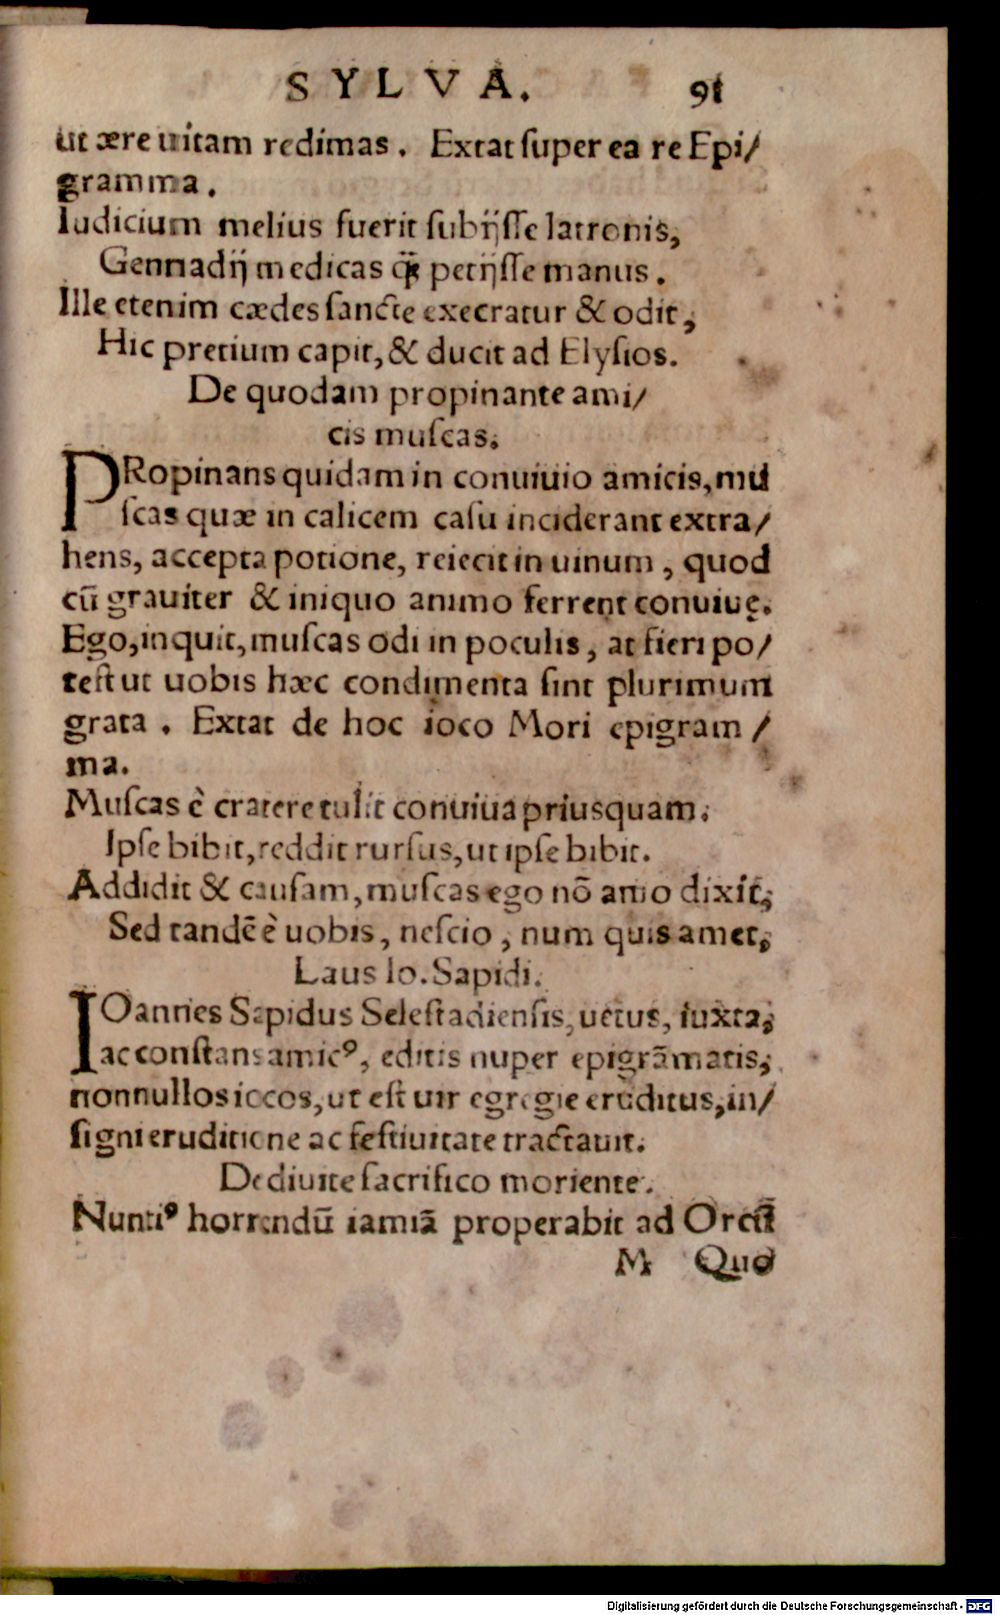 SYLVA. 91
ut ære uitam redimas. Extat super ea re Epi/
gramma.
Iudicium melius fuerit subijsse latronis,
Gennadij medicas q̃ꝫ petijsse manus.
Ille etenim cædes sancte execratur & odit,
Hic pretium capit, & ducit ad Elysios.
De quodam propinante ami/
cis muscas.
PRopinans quidam in conuiuio amicis, mu
scas quæ in calicem casu inciderant extra/
hens, accepta potione, reiecit in uinum, quod
cũ grauiter & iniquo animo ferrent conuiuę.
Ego, inquit, muscas odi in poculis, at fieri po/
test ut uobis hæc condimenta sint plurimum
grata. Extat de hoc ioco Mori epigram/
ma.
Muscas è cratere tulit conuiua priusquam.
Ipse bibit, reddit rursus, ut ipse bibit.
Addidit & causam, muscas ego nō amo dixit,
Sed tandē è uobis, nescio, num quis amet,
Laus Io. Sapidi.
IOannes Sapidus Selestadiensis, uetus, iuxta,
ac constans amicꝰ, editis nuper epigrāmatis,
nonnullos iocos, ut est uir egregie eruditus, in/
signi eruditione ac festiuitate tractauit.
De diuite sacrifico moriente.
Nuntiꝰ horrendū iamiā properabit ad Orcū
M Quo
Digitalisierung gefördert durch die Deutsche Forschungsgemeinschaft - DFG